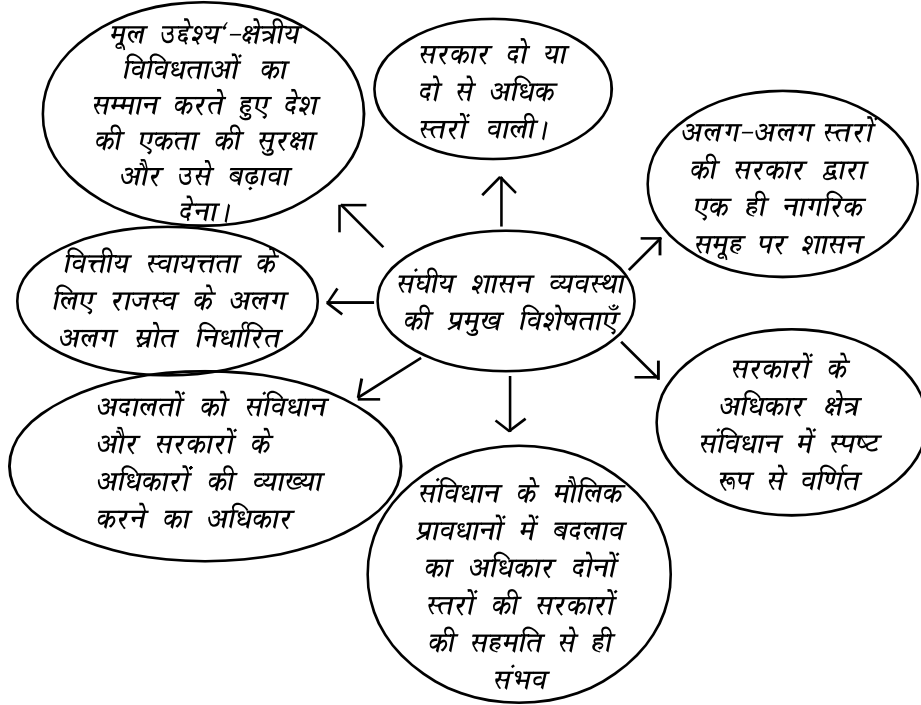 मूल उद्देश्य‘-क्षेत्रीय
विविधताओं का
सम्मान करते हुए देश
की एकता की सुरक्षा
और उसे बढ़ावा
देना।
सरकार दो या
दो से अधिक
स्तरों वाली।
अलग-अलग स्तरों
की सरकार द्वारा
एक ही नागरिक
समूह पर शासन
वित्तीय स्वायत्तता के
लिए राजस्व के अलग
अलग स्रोत निर्धारित
संघीय शासन व्यवस्था
की प्रमुख विशेषताएँ
सरकारों के
अधिकार क्षेत्र
संविधान में स्पष्ट
रूप से वर्णित
अदालतों को संविधान
और सरकारों के
अधिकारों की व्याख्या
करने का अधिकार
संविधान के मौलिक
प्रावधानों में बदलाव
का अधिकार दोनों
स्तरों की सरकारों
की सहमति से ही
संभव